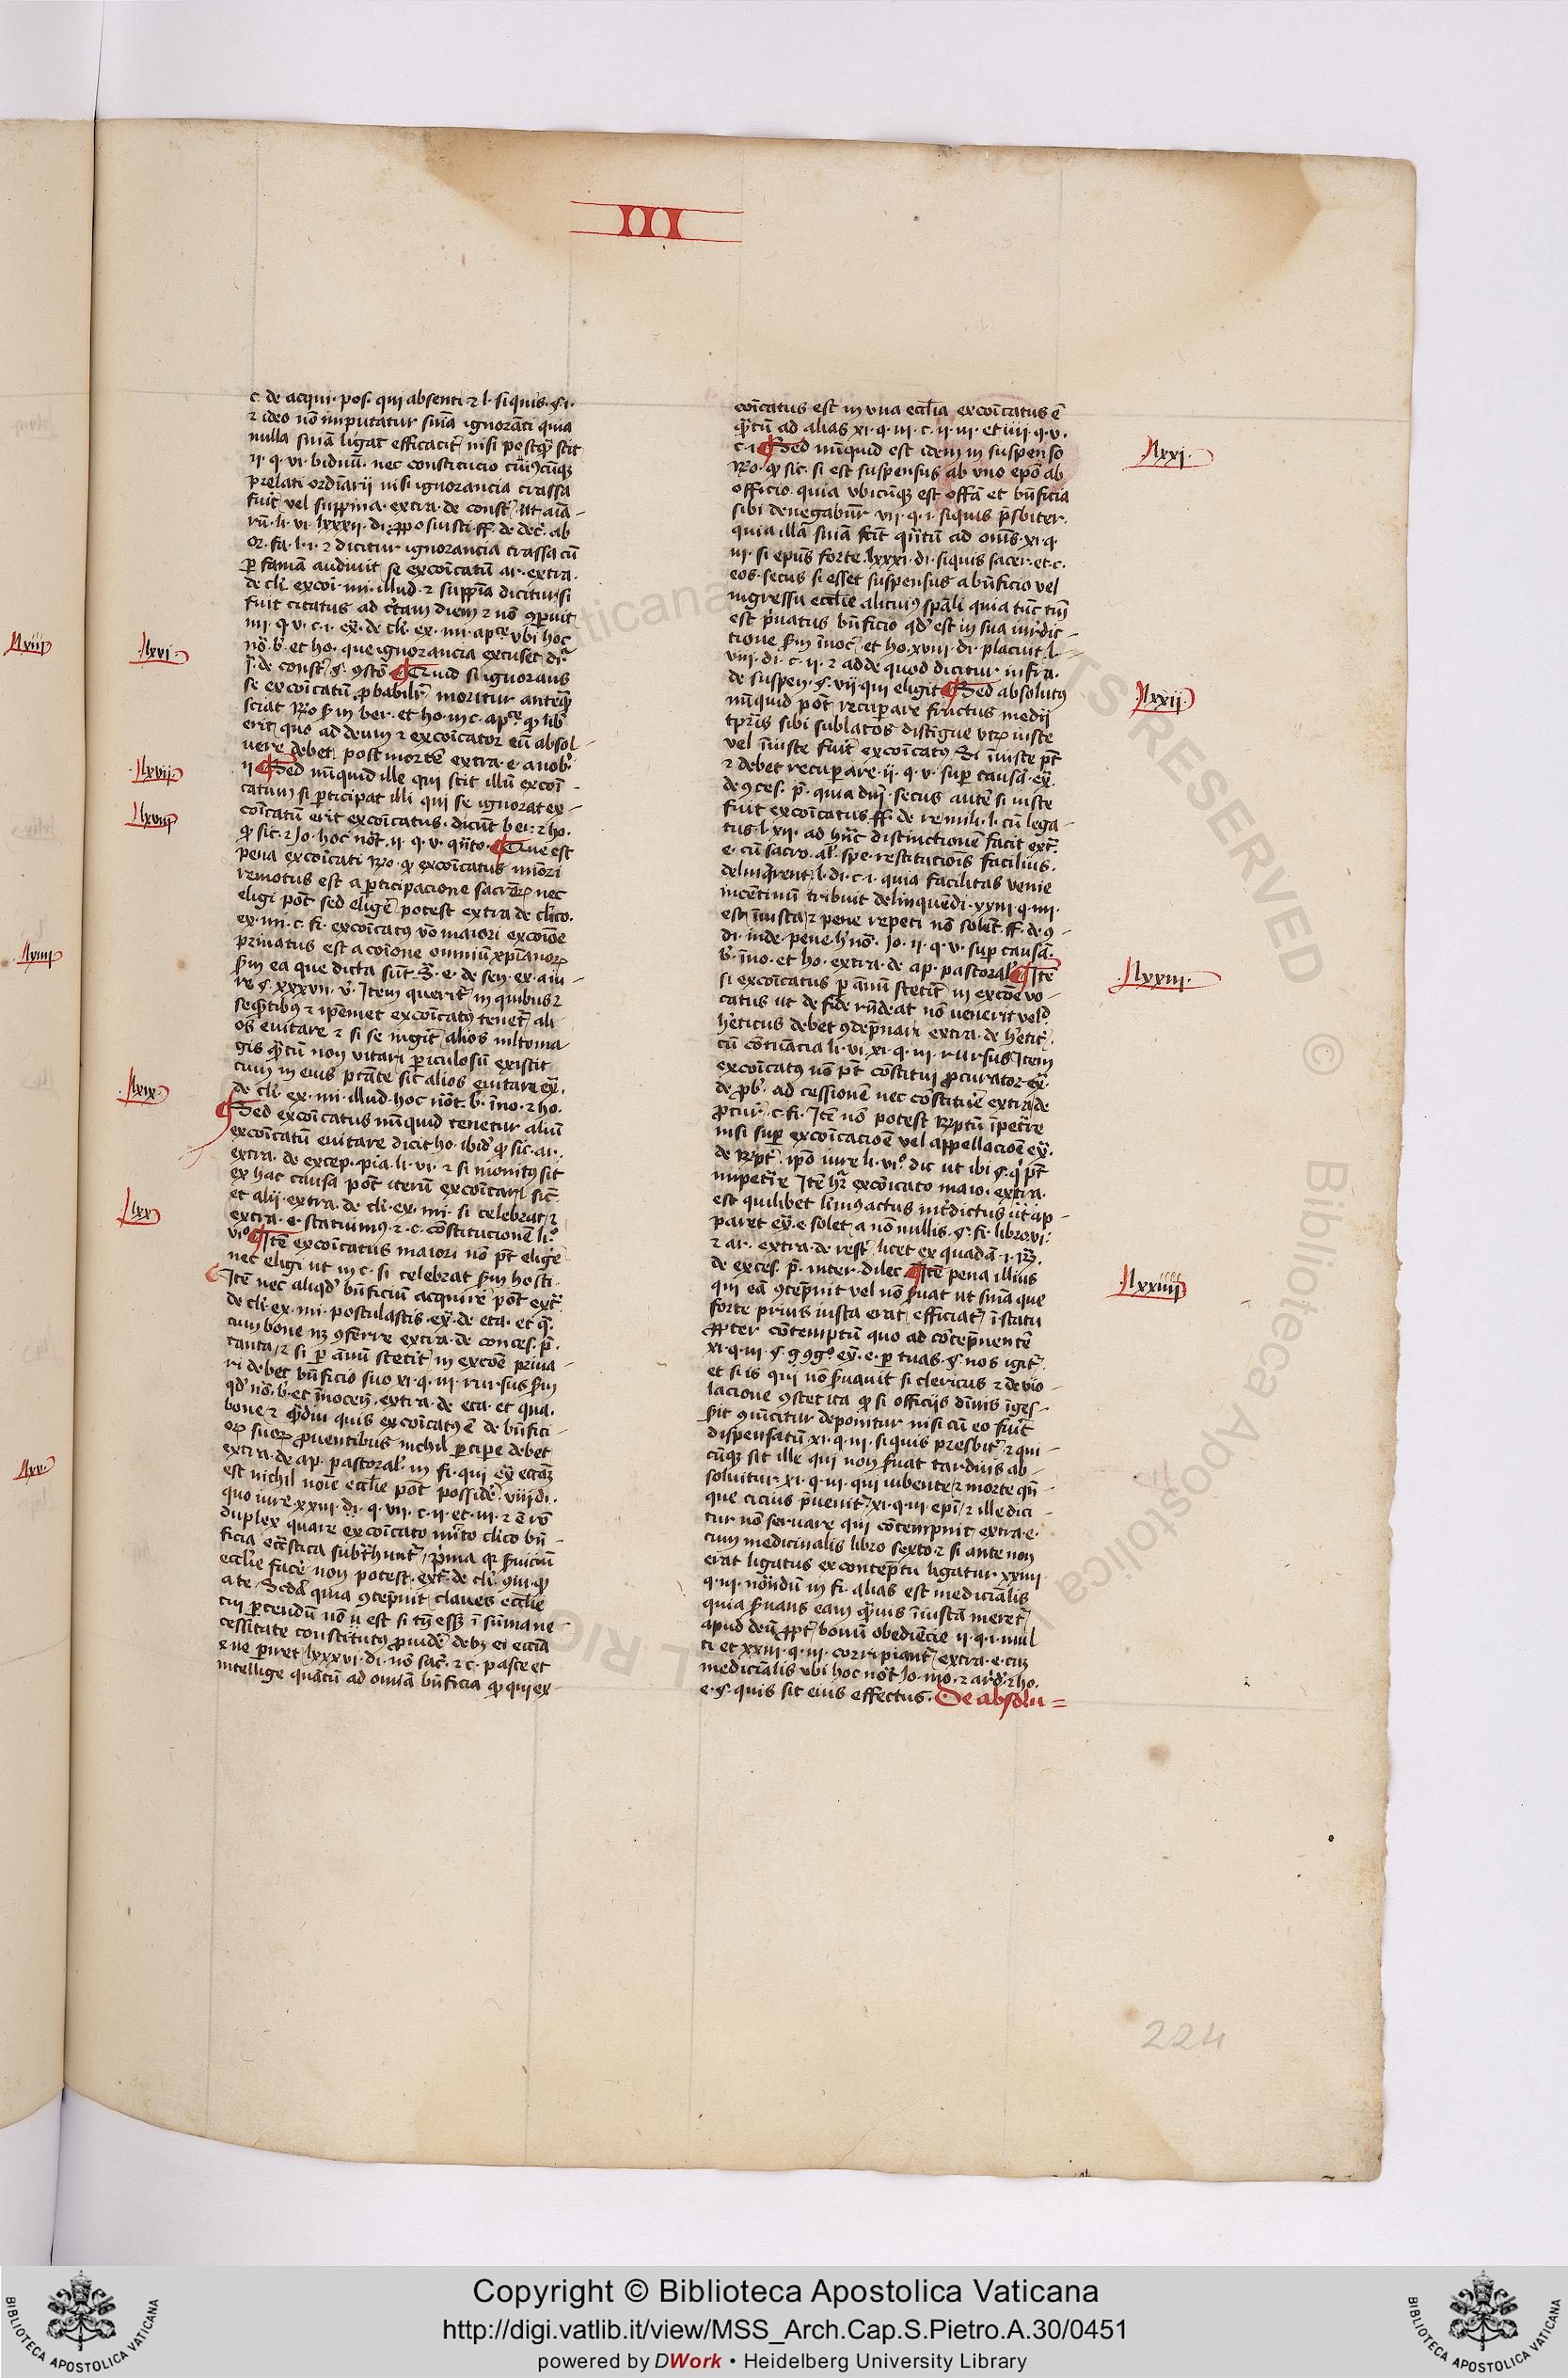 III
c. de acqui. pos. qui absenti ⁊ l. siquis. §. i.
⁊ ideo nō imputatur snīa ignorāti quia
nulla snīa ligat efficacit̄ nisi postqꝫ scit
ii. q. vi. biduū. nec constitucio cuiꝰcūqꝫ
prelati ordīarii nisi ignorancia crassa
fuit vel suppina. extra. de const̄. ut aīa-
rū. li. vi. lxxxii. di. ꝓposuisti. ff. de dec̄. ab
or. fa. l. i. ⁊ dicitur ignorancia crassa cū
ꝑ famā audiuit se excoīcatū ar. extra.
de cli. excoī. mi. illud. ⁊ suppīa dicitur si
fuit citatus ad c̄tam diem ⁊ nō ꝯparuit
iiii. q. v. c. i. ex̄. de cli. ex. mi. ap̄ce vbi hoc
nō. b̄. et ho. que ignorancia excuset dr̄
ī. de const̄. §. ꝯstō ¶ Quid si ignorans
se excoīcatū ꝓbabilr̄ moritur anteqꝫ
sciat Ro. scdm ber. et ho. in c. ap̄ce ꝙ lib̄
erit quo ad deum ⁊ excoīcator eū absol-
uere debet post mortē extra. e. a nob.
ii ¶ Sed nūquid ille qui scit illū excoī-
catum si ꝑticipat illi qui se ignorat ex-
coīcatū erit excoīcatus. dicūt ber. ⁊ ho.
ꝙ sic. ⁊ Jo. hoc nōt. ii. q. v. qn̄to. ¶ Que est
pena excoīcati Ro. ꝙ excoīcatus minori
remotus est a ꝑticipacione sacrōꝝ nec
eligi pōt sed eligē potest extra de clico.
ex. mi. c. fi. excoīcatꝰ vō maiori excoīoe
priuatus est a coīone omniū xp̄ianoꝝ
scdm ea que dicta sūt. s̄. e. de sen. ex. a iu-
re §. xxxvii. v̄. Item querit̄ in quibus ⁊
seq̄ntibꝰ ⁊ ipemet excoīcatꝰ tenet̄ ali-
os euitare ⁊ si se ingit̄ alios ml̄to ma
gis qꝫtū non vitari ꝑiculosū existit
cum in eius ptāte sit alios euitare ex̄.
de cli. ex. mi. illud. hoc nōt. b̄. īno. ⁊ ho.
¶ Sed excoīcatus nūquid tenetur aliū
excoīcatū euitare dicit ho. ibid̄ ꝙ sic. ar.
extra. de excep. pia. li. vi. ⁊ si monitꝰ sit
ex hac causa pōt iterū excoīcari sic̄
et alii. extra. de cli. ex. mi. si celebrat ⁊
extra. e. statuimꝰ. ⁊. c. cōstitucionē li.
vi° ¶ Itē excoīcatus maiori nō pt̄ eligē
nec eligi ut in c. si celebrat scdm hosti.
Itē nec aliqd̄ bn̄ficiū acquirē pōt ext̄.
de cli. ex. mi. postulastis. ex̄. de eta. et q̄.
cum bone nꝫ ꝯferre extra. de conces. p̄.
tanta. ⁊ si ꝑ ānū stetit in excōe priua-
ri debet bn̄ficio suo xi. q. iii. rursus scdm
qd̄ nō. b̄. et īnocen. extra. de eta. et qua.
bone ⁊ qꝫdiu quis excoīcatꝰ ē de bn̄fici-
oꝝ suoꝝ ꝓuentibus nichil ꝑcipe debet
extra. de ap. pastoral. in fi. qui ex̄ eccam
est nichil noīe ecclie pōt possidē. viii di.
quo iure. xxiii. di. q. vii. c. ii. et. iii. ⁊ ē rō
duplex quare excoīcato mīto clico bn̄-
ficia eccl̄stica subt̄hunt̄ / p̄ma qꝛ ſuiciū
ecclie facē non potest. ext̄. de cli. ꝯiu. ꝙ
a te. Secd̄a quia ꝯtep̄nit claues ecclie
cui ꝑcendū nō est si tn̄ esset ī sūma ne
cessitate constitutus ꝓuidē debꝫ ei eccia
ne ꝑiret lxxxvi. di. nō sac̄. ⁊ c. pasce et
intellige quātū ad omīa bn̄ficia ꝙ qui ex-
coīcatus est in vna ecclia excoīcatus ē
qꝫtū ad alias xi. q. iii. c. ii. iii. et iiii. q. v.
c. i ¶ Sed nūquid est idem in suspenso
Ro. ꝙ sic. si est suspensus ab vno epō ab
officio. quia vbicūqꝫ est offm̄ et bn̄ficia
sibi denegabūr vii. q. i. siquis p̄sbiter.
quia illā snīā fcit qn̄tū ad om̄s. xi. q.
iii. si epūs forte. lxxxi. di. siquis sacer. et. c.
eos. secus si esset suspensus a bn̄ficio vel
ingressu ecclie alicuiꝰ spāli quia tūc tm̄
est p̄uatus bn̄ficio qd̄ est in sua iurdic-
tione scdm īnoc̄ et ho. xviii. di. placuit l-
viii. di. c. ii. ⁊ adde quod dicitur infra.
de suspen. §. vii. qui eligit ¶ Sed absolutꝰ
nūquid pōt recuꝑare fructus medii
tp̄ris sibi sublatos distigue vtꝝ iuste
vel īiuste fuit excoīcatꝰ Si īiuste pt̄
⁊ debet recuꝑare. ii. q. v. suꝑ causā. ex̄.
de ꝯces. p̄. quia diu. secus autē si iuste
fuit excoīcatus ff. de re mili. l. cū lega-
tus. l. xii. ad hūc distinctionē facit ext̄.
e. cū sacro. al. spe. restitucōis facilius.
delinq̄rent. l. di. c. i. quia facilitas venie
incentiuū tribuit delinquēdi. xxiii. q. iiii.
est iniusta. ⁊ pene repeti nō solēt. ff. de ꝯ-
di. inde. pene. h̄ nō. Jo. ii. q. v. suꝑ causā.
b̄. īno. et ho. extra. de ap. pastoral. ¶ Itē
si excoīcatus ꝑ ānū stetit in excōe vo-
catus ut de fide rn̄deat nō uenerit vel d.
h̄eticus debet ꝯdēpnari extra. de h̄etic̄.
cū cōtuācia li. vi xi. q. iii. rursus Item
excoīcatꝰ nō pt̄ cōstitui ꝓcurator. ex̄.
de ꝓb̄. ad cessionē nec cōstituē extra de
ꝓcur̄. c. fi. Itē nō potest Rp̄tū īpetr̄e
nisi suꝑ excoīcacioē vel appellacioē ex̄.
de Rp̄t. ip̄o iure li. vi°. dic ut ibi §. qꝫ pt̄
impetr̄e Itē hr̄ excoīcato maio. extra.
est quilibet līmꝰ actus int̄dictus ut ap-
paret ex̄. e. solet a nō nullis. §. fi. libro vi.
⁊ ar. extra. de rest̄. licet ex quadā. i. R̄.
de exces. p̄. inter dilec̄ ¶ Itē pena illius
qui eā ꝯtep̄nit vel nō ſuat ut snīa que
forte prius iusta erat efficiat̄ ī statu
ꝓpter cōtemptū quo ad cōtep̄nentē
xi. q. iii. §. ꝯꝯ°. ex̄. e. ꝑ tuas. §. nos igit̄.
et si is qui nō ſuauit si clericus ⁊ de vio-
lacione ꝯstet ita ꝙ si officijs diuīs īges-
sit ꝯuīcitur deponitur nisi cū eo fuit
dispensatū xi. q. iii. siquis presbit̄. ⁊ qui-
cūqꝫ sit ille qui non ſuat tardius ab-
soluitur. xi. q. iii. qui iubente ⁊ morte qn̄-
que cicius p̄uenit̄. xi. q. iii. epi. ⁊ ille dici-
tur nō seruare qui cōtempnit extra. e.
cum medicinalis libro sexto. ⁊ si ante non
erat ligatus ex contēptu ligatur xxiiii.
q. iii. nōndū in fi. alias est mediciālis
quia ſuans eam qꝫuis īiustā meret̄
apud deū ꝓpt̄ bonū obediēcie ii. q. i. mul-
ti et xxiii. q. iii. corripiant̄ extra. e. cū
mediciālis vbi hoc nōt Jo. īno. ⁊ ard̄. ⁊ ho.
e. §. quis sit eius effectus. De absolu=
lxiii
lxiiii
lxv.
lxvi.
lxvii.
lxviii
lxix.
lxx.
lxxi.
lxxii.
lxxiii.
lxxiiii
224
ALL RIGHTS RESERVED © Biblioteca Apostolica Vaticana
BIBLIOTECA APOSTOLICA VATICANA
Copyright © Biblioteca Apostolica Vaticana
http://digi.vatlib.it/view/MSS_Arch.Cap.S.Pietro.A.30/0451
powered by DWork • Heidelberg University Library
BIBLIOTECA APOSTOLICA VATICANA